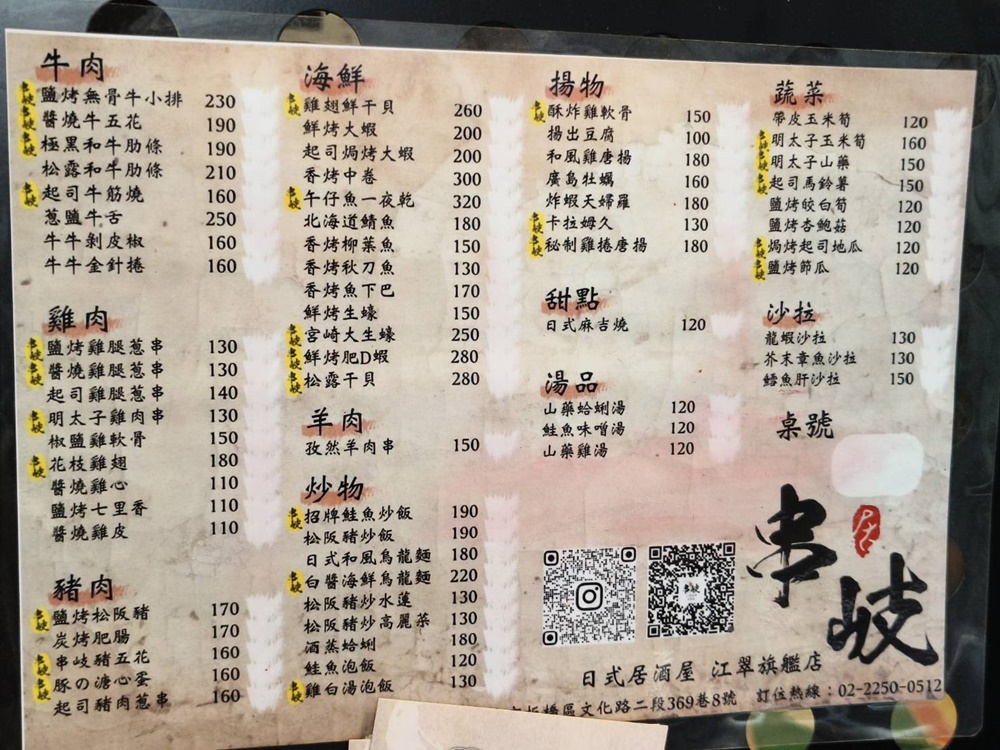 牛肉
鹽烤無骨牛小排 230
醬燒牛五花 190
極黑和牛肋條 190
松露和牛肋條 210
起司牛筋燒 160
蔥鹽牛舌 250
牛牛剝皮椒 160
牛牛金針捲 160
雞肉
鹽烤雞腿蔥串 130
醬燒雞腿蔥串 130
起司雞腿蔥串 140
明太子雞肉串 130
椒鹽雞軟骨 150
花枝雞翅 180
醬燒雞心 110
鹽烤七里香 110
醬燒雞皮 110
豬肉
鹽烤松阪豬 170
炭烤肥腸 170
串岐豬五花 160
豚の溏心蛋 160
起司豬肉蔥串 160
海鮮
雞翅鮮干貝 260
鮮烤大蝦 200
起司焗烤大蝦 200
香烤中卷 300
午仔魚一夜乾 320
北海道鯖魚 180
香烤柳葉魚 150
香烤秋刀魚 130
香烤魚下巴 170
鮮烤生蠔 150
宮崎大生蠔 250
鮮烤肥D蝦 280
松露干貝 280
羊肉
孜然羊肉串 150
炒物
招牌鮭魚炒飯 190
松阪豬炒飯 190
日式和風烏龍麵 180
白醬海鮮烏龍麵 220
松阪豬炒水蓮 130
松阪豬炒高麗菜 130
酒蒸蛤蜊 180
鮭魚泡飯 120
雞白湯泡飯 130
揚物
酥炸雞軟骨 150
揚出豆腐 100
和風雞唐揚 180
廣島牡蠣 160
炸蝦天婦羅 180
卡拉姆久 130
秘制雞捲唐揚 180
甜點
日式麻吉燒 120
湯品
山藥蛤蜊湯 120
鮭魚味噌湯 120
山藥雞湯 120
蔬菜
帶皮玉米筍 120
明太子玉米筍 160
明太子山藥 150
起司馬鈴薯 150
鹽烤皎白筍 120
鹽烤杏鮑菇 120
焗烤起司地瓜 120
鹽烤節瓜 120
沙拉
龍蝦沙拉 130
芥末章魚沙拉 130
鱈魚肝沙拉 150
桌號
串岐
居
日式居酒屋 江翠旗艦店
板橋區文化路二段369巷8號 訂位熱線：02-2250-0512